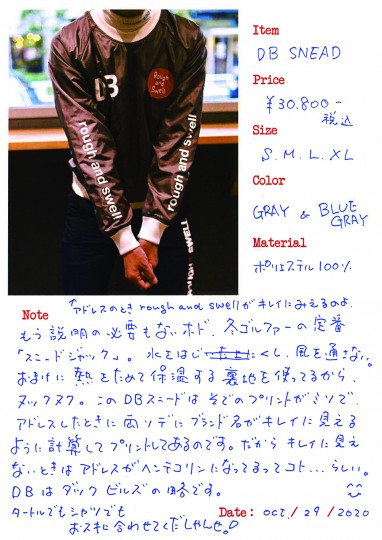 Item
DB SNEAD
Price
¥30.800-
税込
Size
S. M. L. XL
Color
GRAY & BLUE GRAY
Material
ポリエステル100%
DB
Rough and Swell
rough and swell
rough and swell
Note
↑アドレスのとき rough and swellがキレイにみえるのよ.
もう説明の必要もないホド、冬ゴルファーの定番
「スニードジャック」。水をはじくし、風を通さない。
おまけに熱をためて保温する裏地を使ってるから、
ヌックヌク。このDBスニードはそでのプリントがミソで、
アドレスしたときに両ソデにブランド名がキレイに見える
ように計算してプリントしてあるのです。だからキレイに見え
ないときはアドレスがヘンテコリンになってるってコト...らしい。
DBはダックビルズの略です。
タートルでもシャツでも
おスキに合わせてくだしゃんせ。
Date: OCT. / 29 / 2020